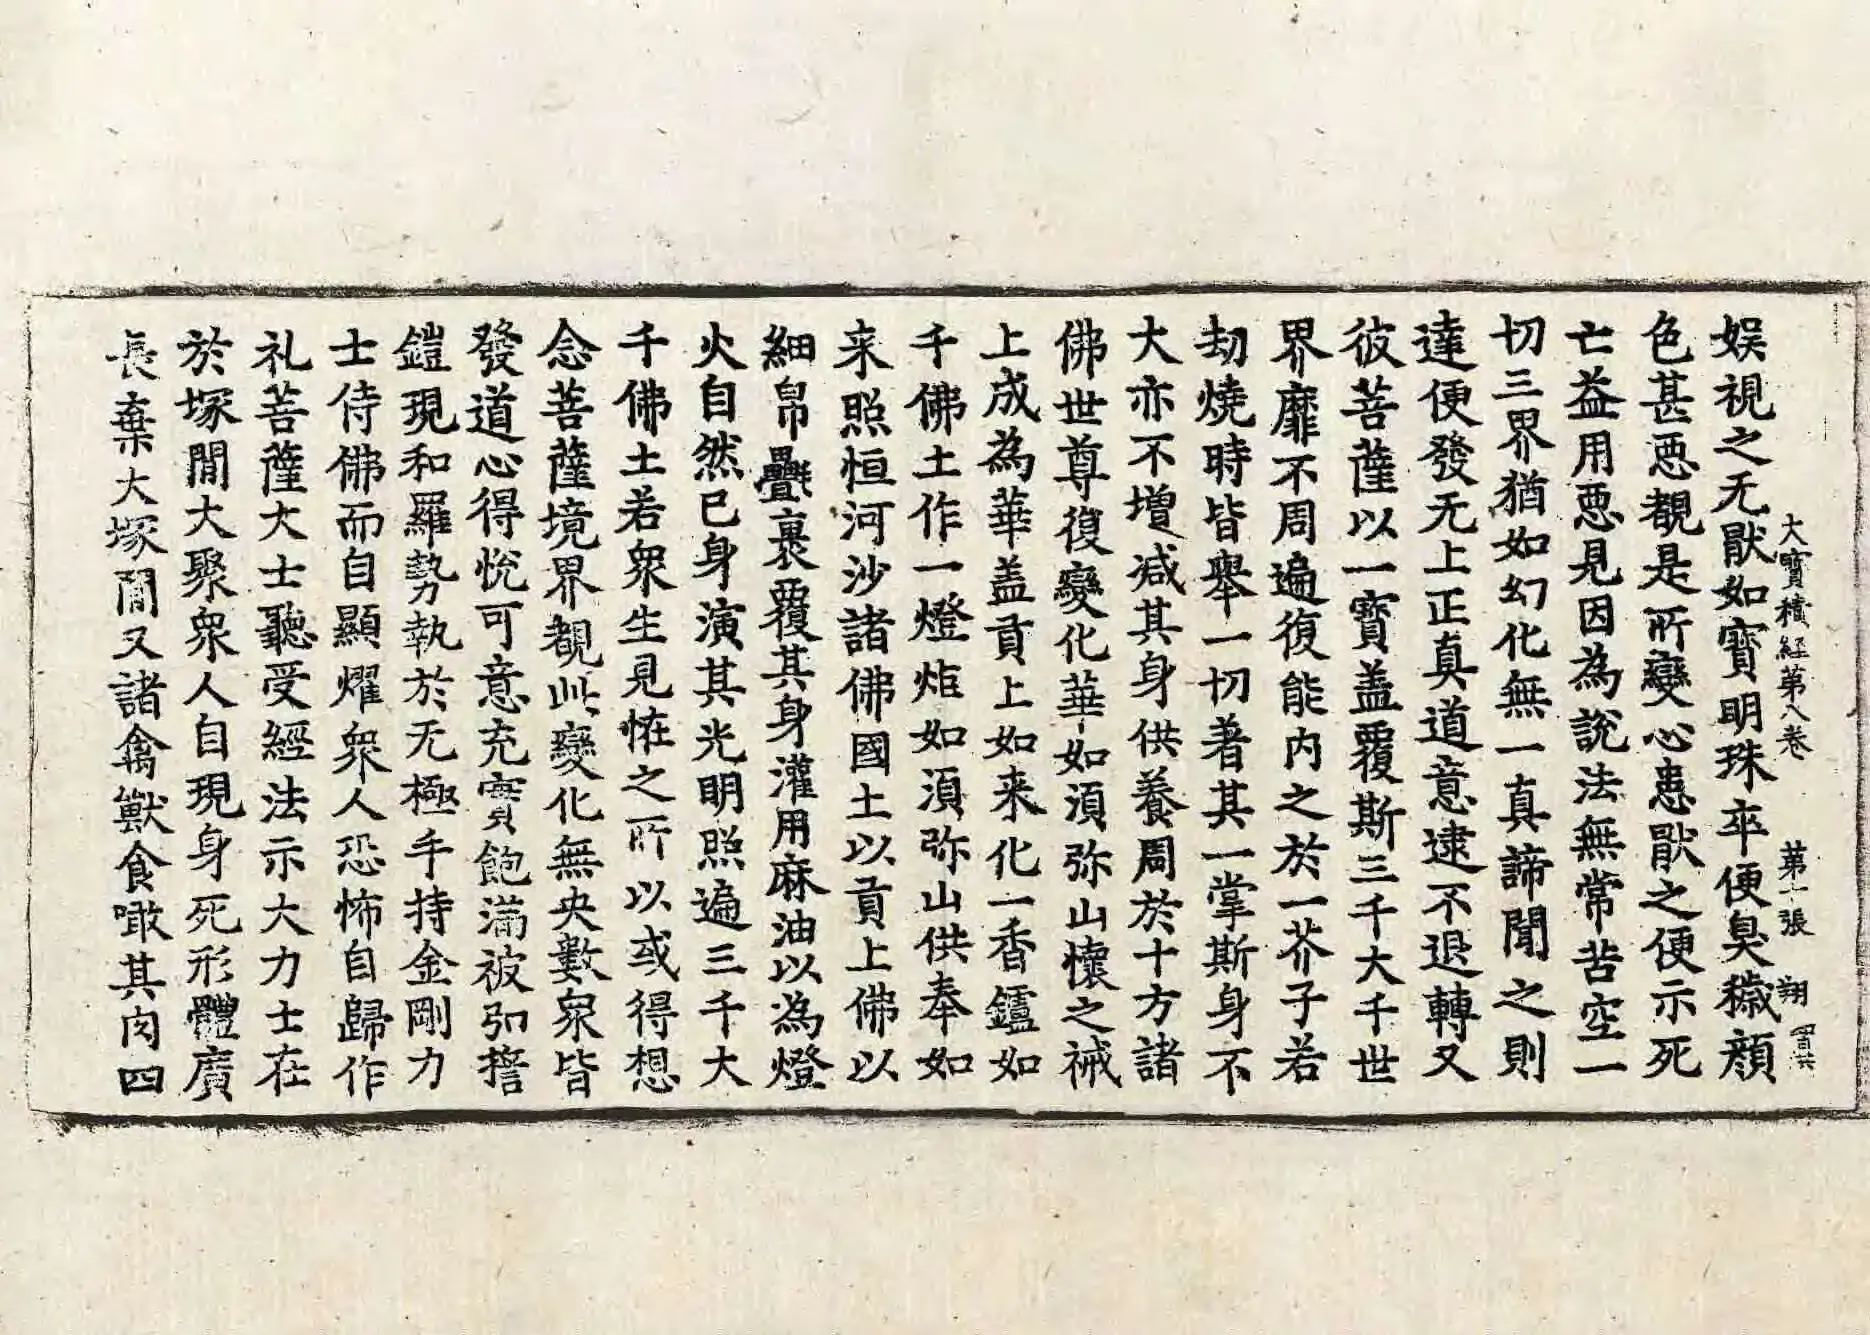 大寶積經第八卷 第十張 翔
娱視之无猒如寶明珠卒便臭穢顔
色甚惡覩是所變心患猒之便示死
亡益用惡見因為說法無常苦空一
切三界猶如幻化無一真諦聞之則
達便發无上正真道意逮不退轉又
彼菩薩以一寶盖覆斯三千大千世
界靡不周遍復能内之於一芥子若
劫燒時皆舉一切著其一掌斯身不
大亦不增减其身供養周於十方諸
佛世尊復變化華如湏弥山懷之祴
上成為華盖貢上如来化一香鑪如
千佛土作一燈炬如湏弥山供奉如
来照恒河沙諸佛國土以貢上佛以
細帛疊裹覆其身灌用麻油以為燈
火自然已身演其光明照遍三千大
千佛土若衆生見恠之所以或得想
念菩薩境界覩此變化無央數衆皆
發道心得悅可意充實飽滿被弘誓
鎧現和羅勢執於无極手持金剛力
士侍佛而自顯耀衆人恐怖自歸作
礼菩薩大士聽受經法示大力士在
於塚閒大聚衆人自現身死形體廣
長棄大塚閒又諸禽獸食噉其肉四